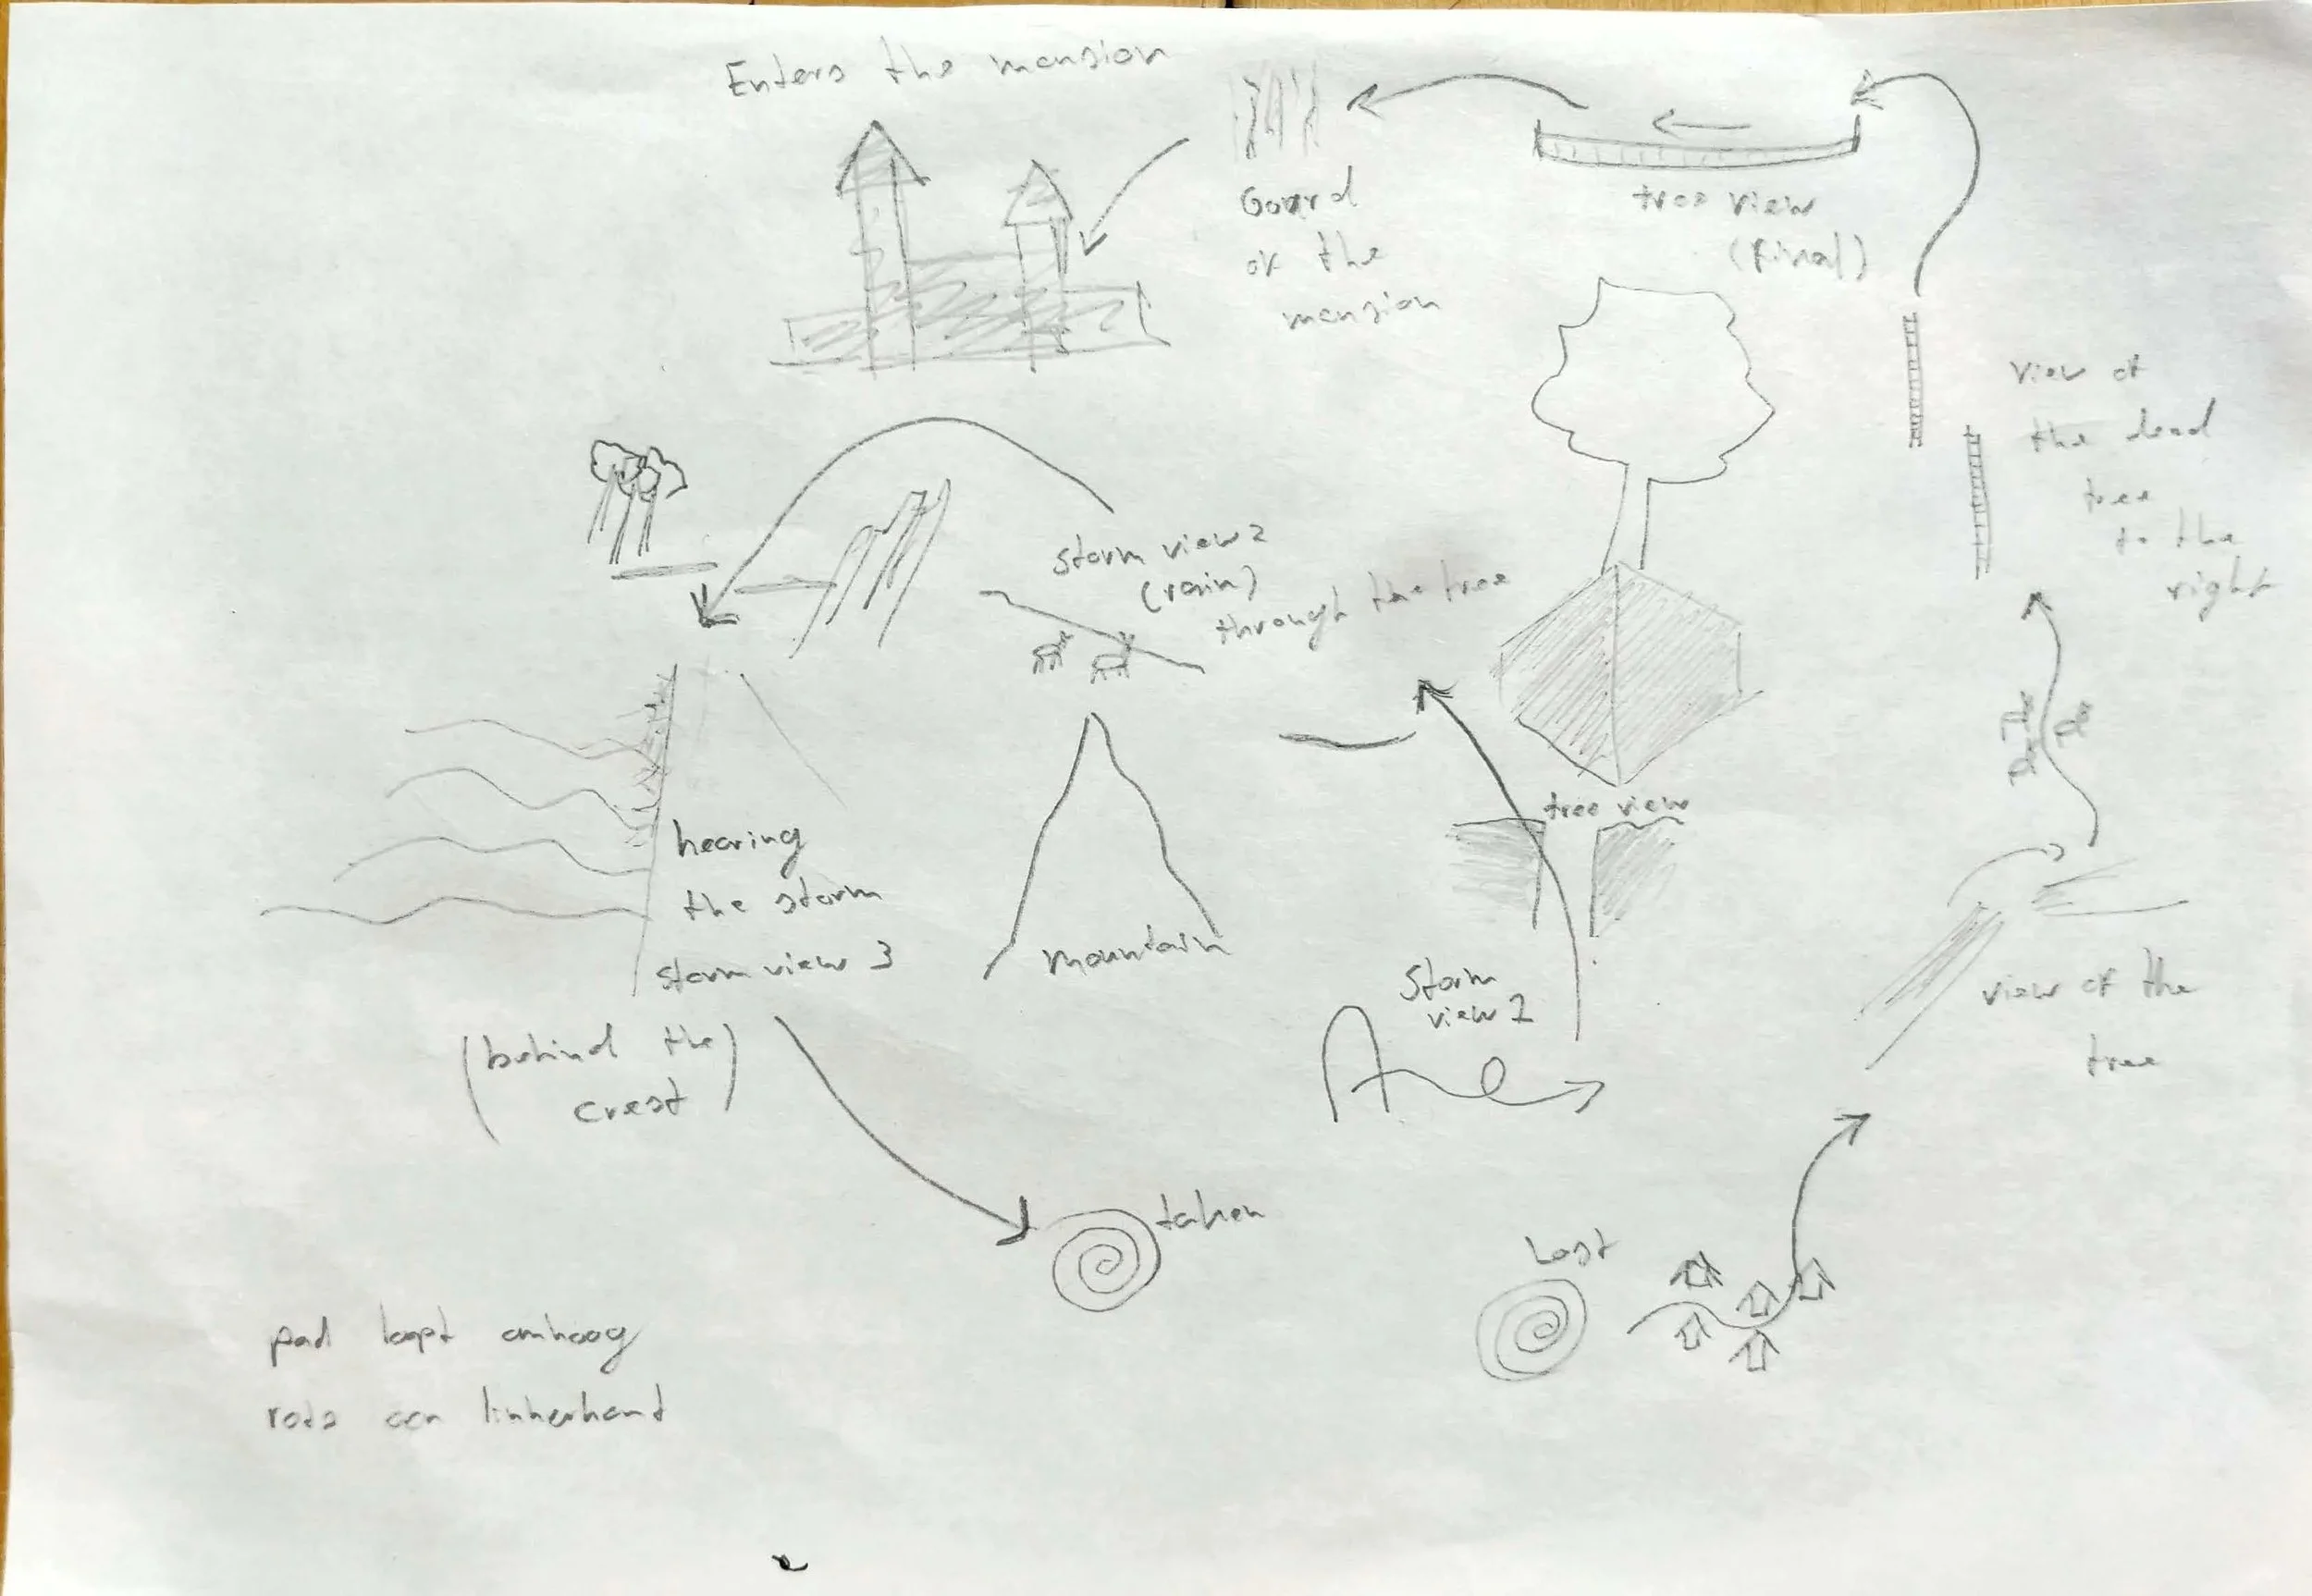 Enters the mansion
Guard
of the
mansion
tree view
(final)
view of
the dead
tree
to the
right
storm view 2
(rain)
through the tree
tree view
hearing
the storm
storm view 3
(behind the
crest)
mountain
Storm
view 1
view of the
tree
taken
Lost
pad loopt omhoog
rots aan linkerhand